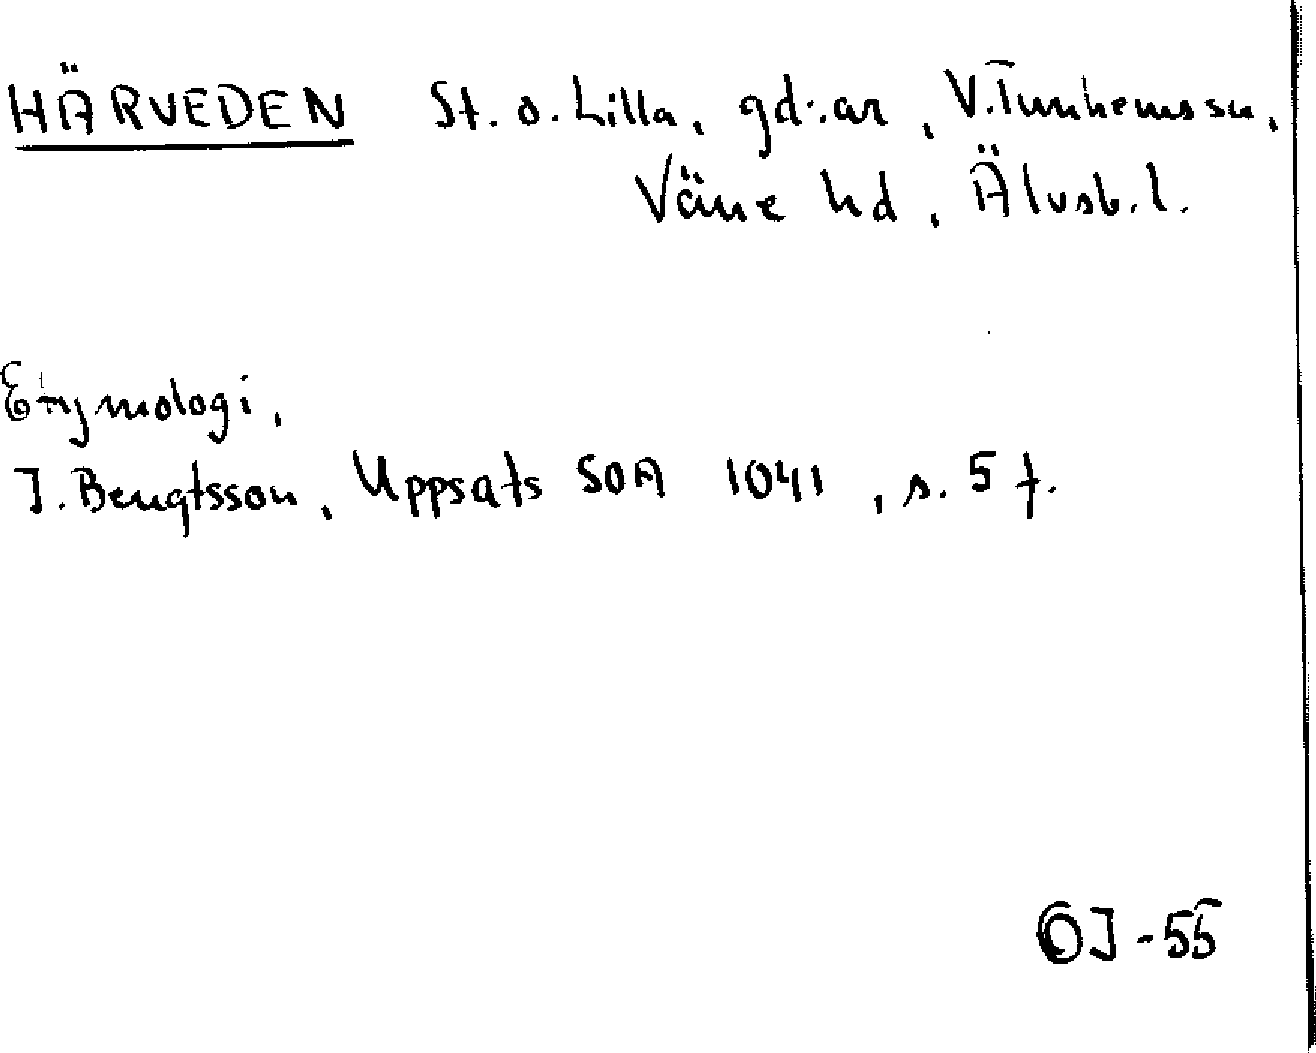 HÄRVEDEN St. o. Lilla, gd:ar, V. Tunhems sn,
Väne hd, Älvsb. l.
Etymologi,
I. Bengtsson, Uppsats SOA 1041, s. 5 f.
OJ-55